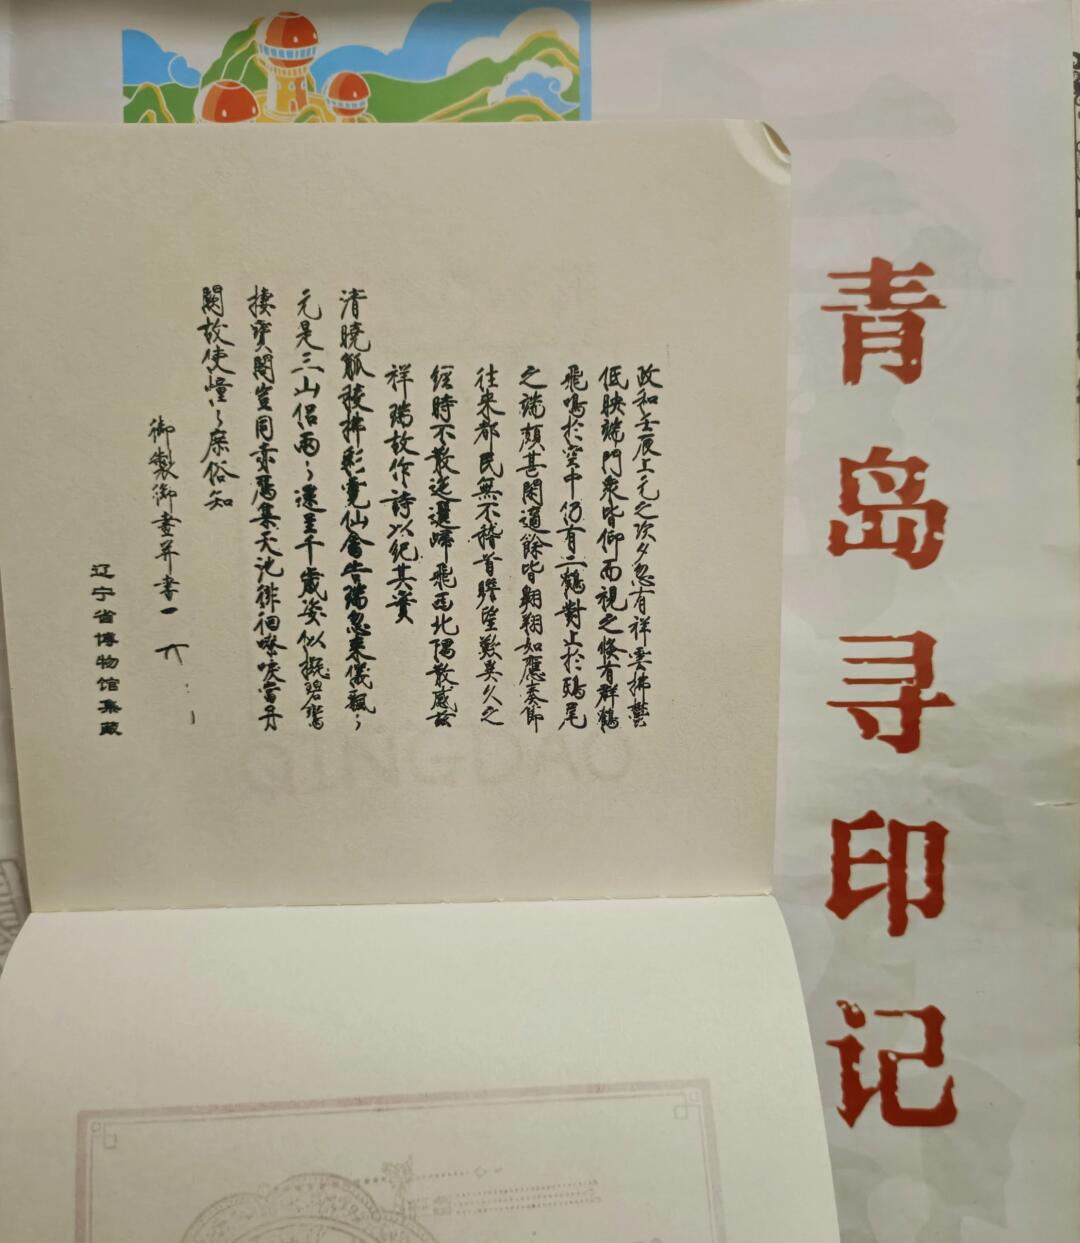 政和壬辰上元之次夕忽有祥雲拂鬱
低映端門衆皆仰而視之倏有群鶴
飛鳴於空中仍有二鶴對止於鴟尾
之端頗甚閑適餘皆翱翔如應奏節
往来都民無不稽首瞻望歎異久之
經時不散迤邐歸飛西北隅散感茲
祥瑞故作詩以紀其實
清曉觚稜拂彩霓仙禽告瑞忽来儀飄〻
元是三山侶兩〻還呈千歲姿似擬碧鸞
棲寶閣豈同赤鴈集天池徘徊嘹唳當丹
闕故使憧〻庶俗知
御製御畫并書
辽宁省博物馆集藏
QINGDAO
青岛寻印记